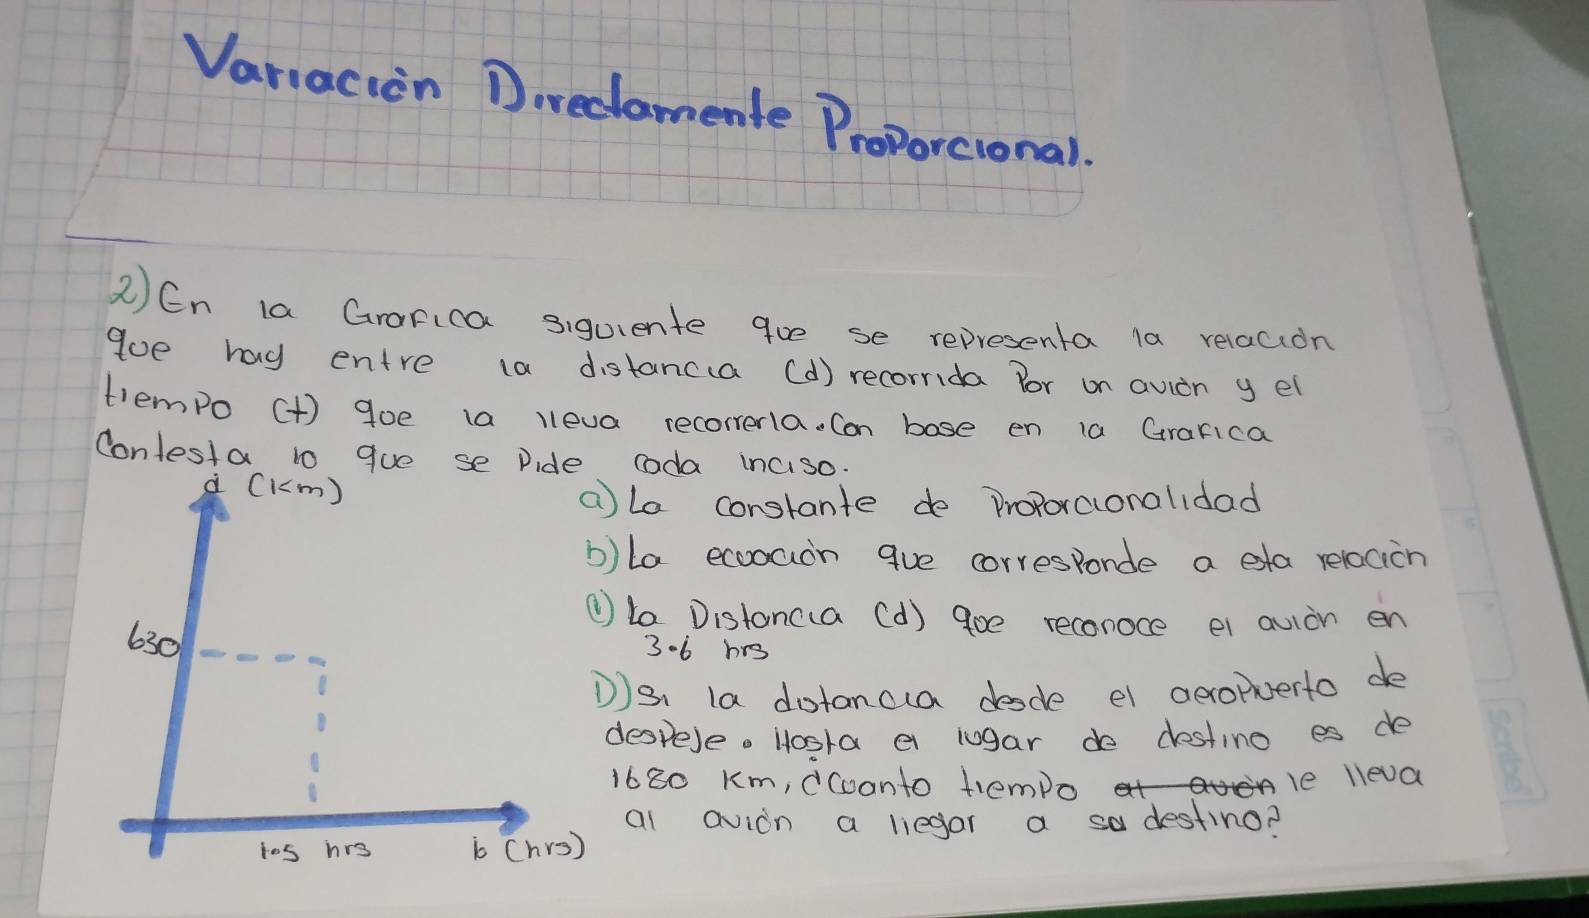 Variación Directamente Proporcional.
2) En la Grafica siguiente que se representa la relación
que hay entre la distancia (d) recorrida Por un avión y el
tiempo (t) que la lleva recorrerla. Con base en la Grafica
Contesta lo que se Pide cada inciso.
d (Km)
a) La constante de Proporcionalidad
b) La ecuación que corresponde a esta relación
c) La Distancia (d) que reconoce el avión en
3.6 hrs
630
D) Si la distancia desde el aeropuerto de
despeje. Hasta el lugar de destino es de
1680 Km, ¿Cuanto tiempo le lleva
al avión a llegar a su destino?
1.5 hrs
t (hrs)